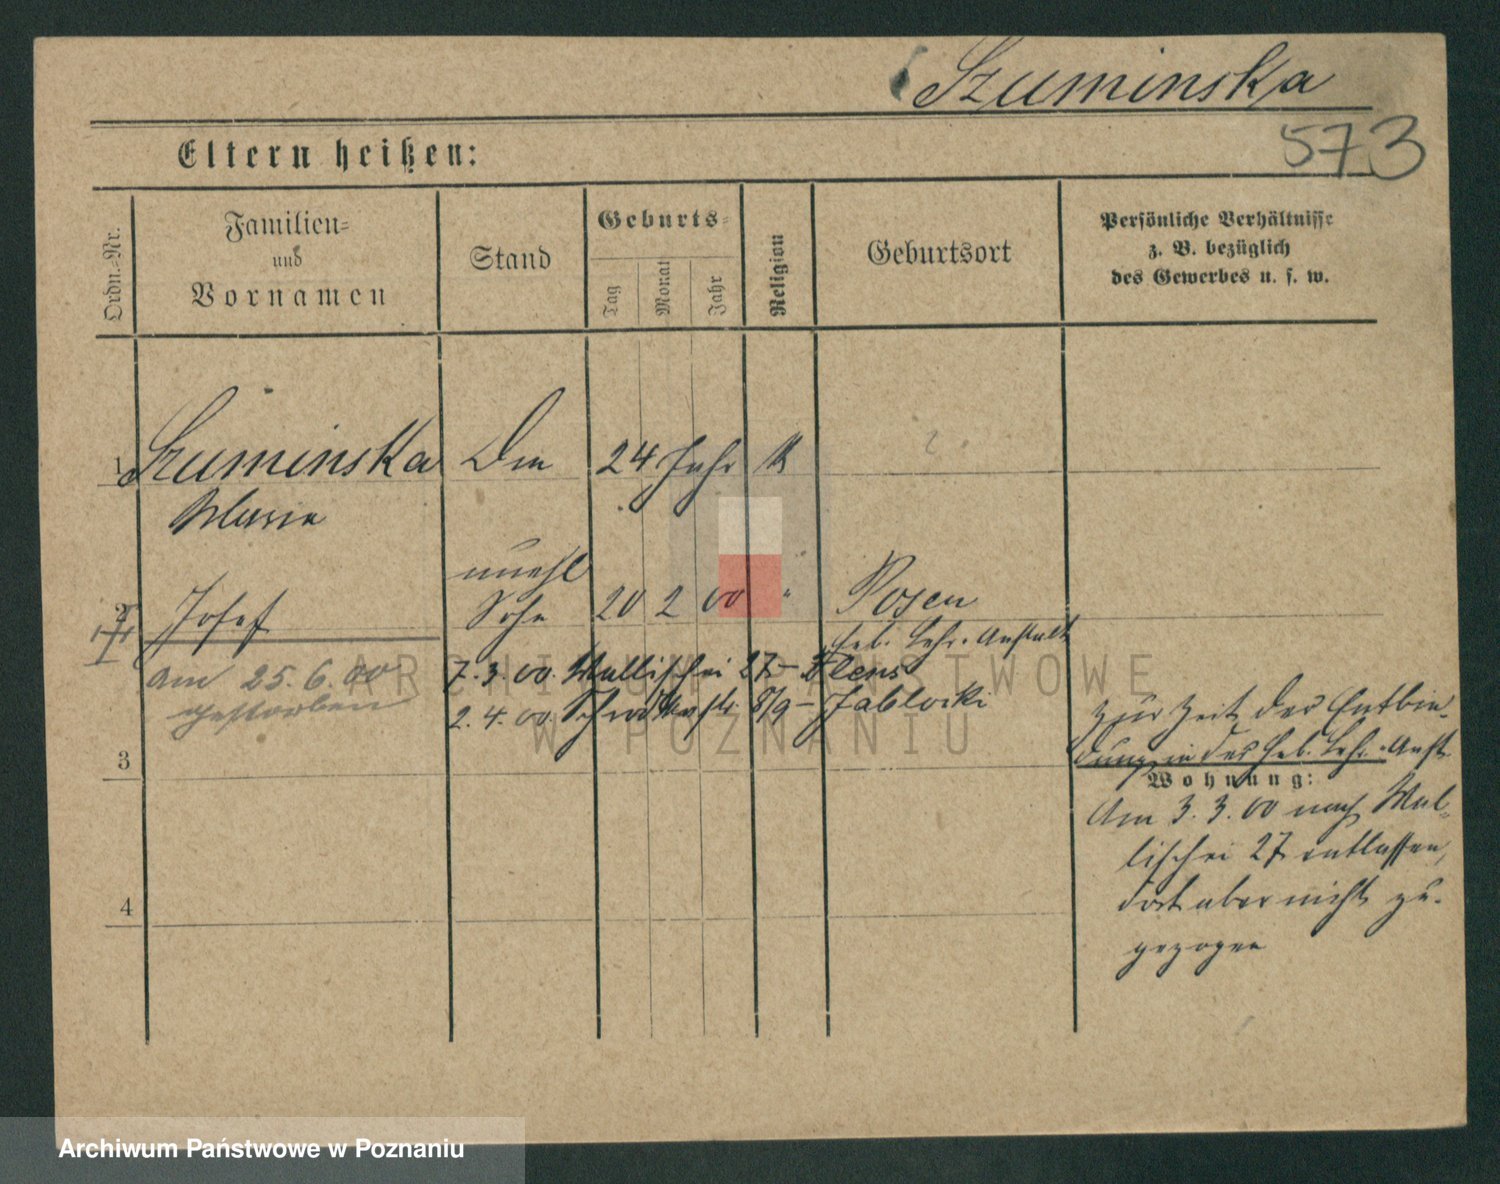 Szuminska
573
Eltern heißen:
Ordn.-Nr.
Familien-
und
Vornamen
Stand
Geburts-
Tag
Monat
Jahr
Religion
Geburtsort
Persönliche Verhältnisse
z. B. bezüglich
des Gewerbes u. s. w.
1 Szuminska 24 Jahr K ?
Marie
unehl
2 Josef Sohn 20 2 00 " Posen
Geb. Lehr. Anstalt
am 25.6.00
gestorben
7.3.00. Wallischei 27 –
2.4.00. 8/9 – Jablocki
3
4
Zur Zeit der Entbin-
dung in der Geb. Lehr-Anst.
Wohnung:
Am 3.3.00 nach Wal-
lischei 27 entlassen,
dort aber nicht zu-
gezogen
ARCHIWUM PAŃSTWOWE
W POZNANIU
Archiwum Państwowe w Poznaniu